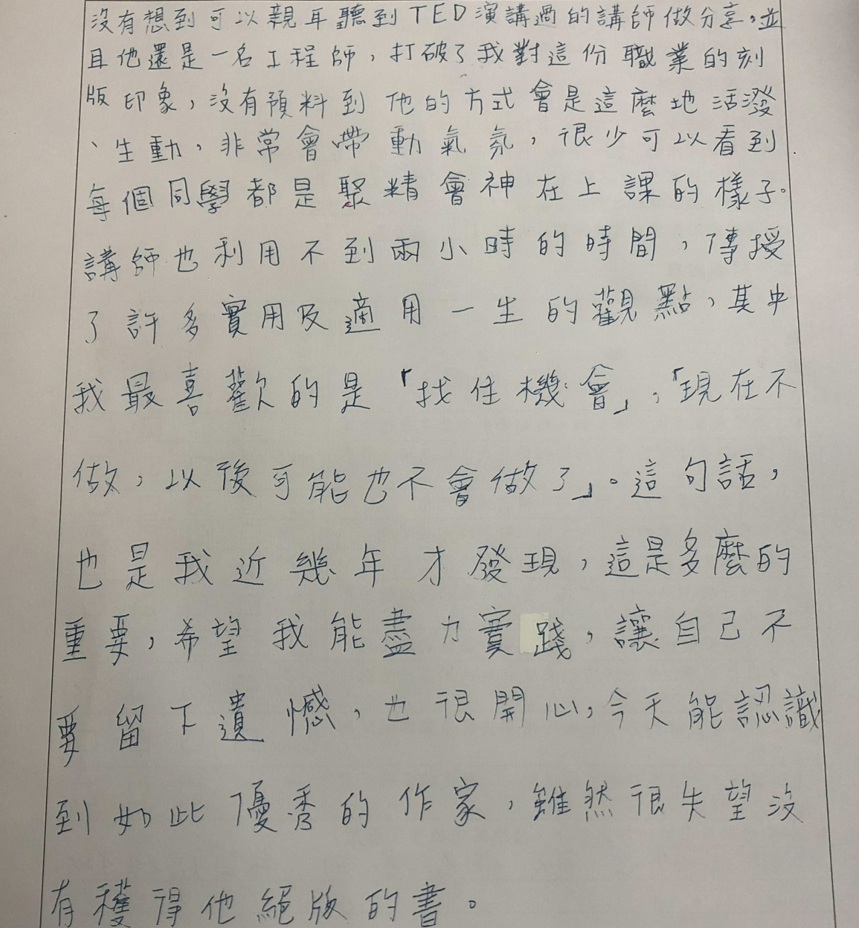 沒有想到可以親耳聽到TED演講過的講師做分享,並
且他還是一名工程師,打破了我對這份職業的刻
版印象,沒有預料到他的方式會是這麼地活潑
、生動,非常會帶動氣氛,很少可以看到
每個同學都是聚精會神在上課的樣子。
講師也利用不到兩小時的時間,傳授
了許多實用及適用一生的觀點,其中
我最喜歡的是「找住機會」,「現在不
做,以後可能也不會做了」。這句話,
也是我近幾年才發現,這是多麼的
重要,希望我能盡力實踐,讓自己不
要留下遺憾,也很開心,今天能認識
到如此優秀的作家,雖然很失望沒
有穫得他絕版的書。